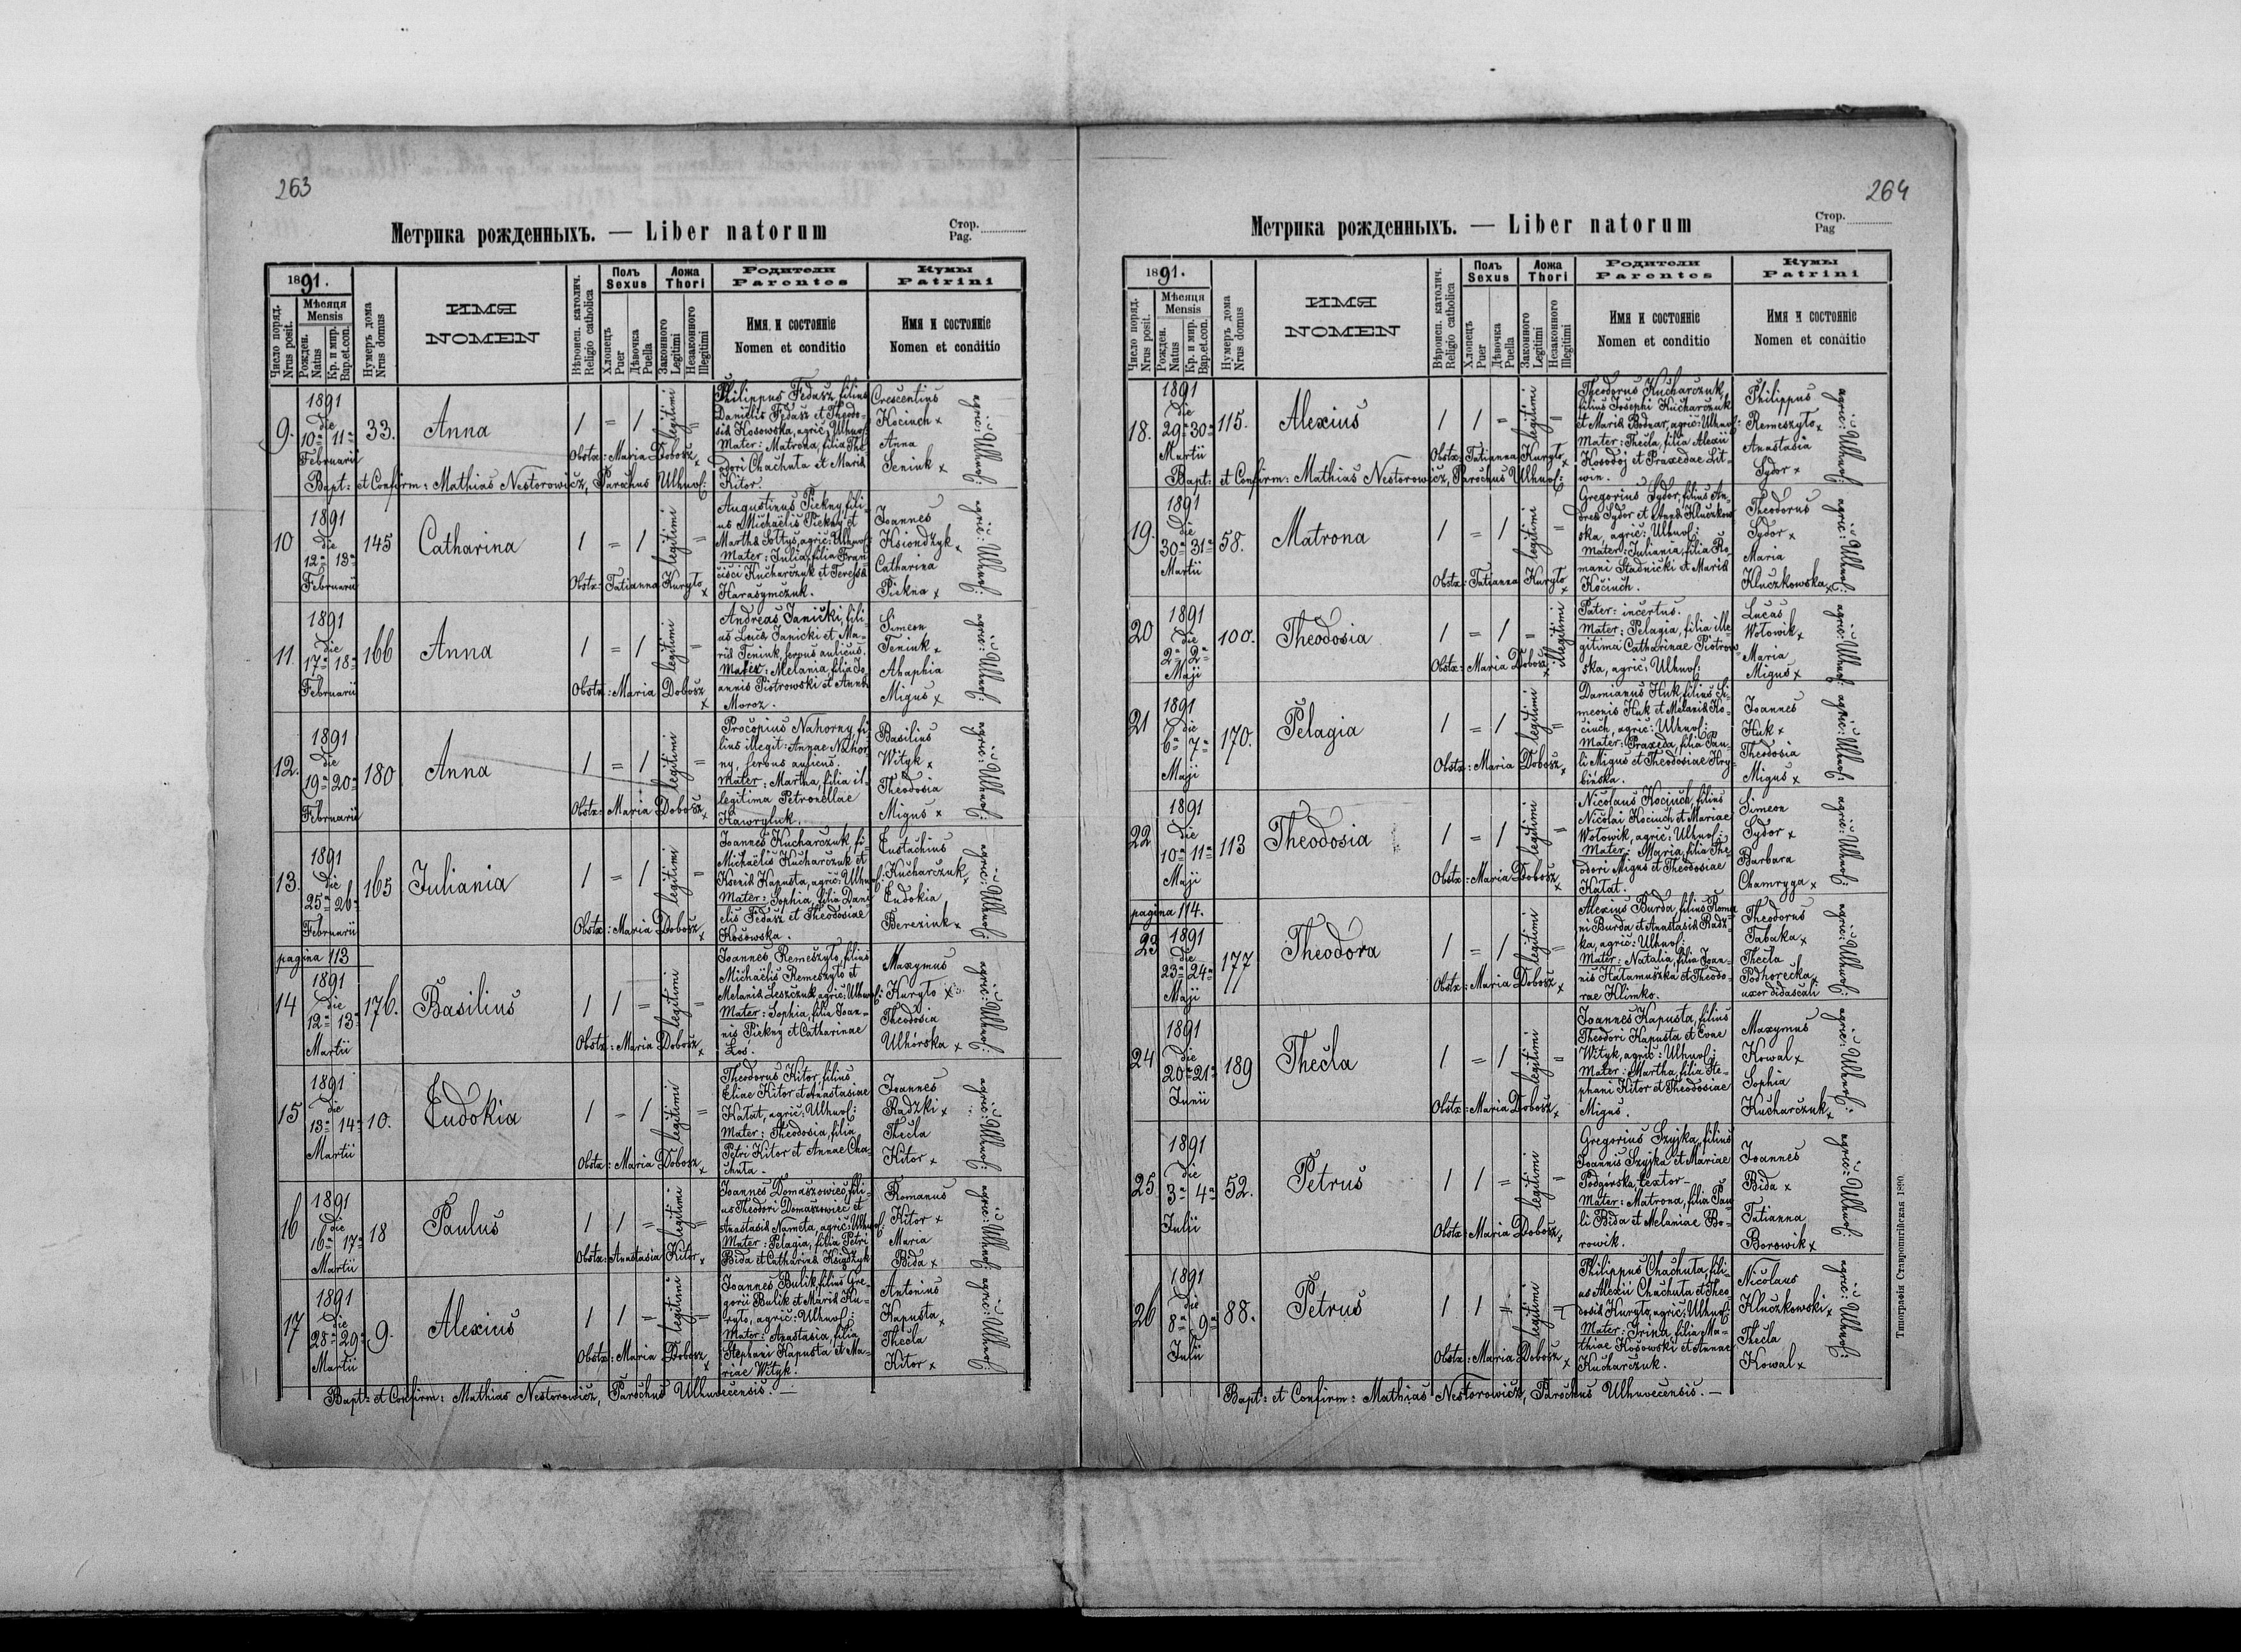 263
Метрика рожденныхъ. — Liber natorum
Стор.
Pag.
1891.
Число поряд.
Nrus posit.
Мѣсяця
Mensis
Рожден.
Natus
Кр. и мир.
Bap. et con.
Нумеръ дома
Nrus domus
ИМЯ
NOMEN
Вѣроисп. католич.
Religio catholica
Полъ
Sexus
Хлопецъ
Puer
Дѣвочка
Puella
Ложа
Thori
Законного
Legitimi
Незаконного
Illegitimi
Родители
Parentes
Имя и состояніе
Nomen et conditio
Кумы
Patrini
Имя и состояніе
Nomen et conditio
9.
1891
die
10ª 11ª
Februarii
33.
Anna
1 = 1 legitimi =
Obstx: Maria Dobosz x
Philippus Fedasz, filius
Danielis Fedasz et Theodo=
siæ Kosowska, agric: Ulhuv:
Mater: Matrona, filia The
odori Chachuta et Mariæ
Kitor.
Crescentius
Kociuch x
Anna
Seniuk x
agric: Ulhuv:
Bapt: et Confirm: Mathias Nestorowicz, Parochus Ulhuv:
10
1891
die
12ª 13ª
Februarii
145
Catharina
1 = 1 legitimi =
Obstx: Tatianna Kuryło x
Augustinus Piekny, fili=
us Michaëlis Piekny et
Marthæ Sołtys, agric: Ulhuv:
Mater: Julia, filia Fran
cisci Kucharczuk et Teressæ
Harasymczuk.
Joannes
Ksiondzyk x
Catharina
Piekna x
agric: Ulhuv:
11.
1891
die
17ª 18ª
Februarii
166
Anna
1 = 1 legitimi =
Obstx: Maria Dobosz x
Andreas Janicki, fili=
us Lucæ Janicki et Ma=
riæ Teniuk, servus aulicus.
Mater: Melania, filia Jo
annis Piotrowski et Annæ
Moroz.
Simeon
Teniuk x
Ahaphia
Migus x
agric: Ulhuv:
12.
1891
die
19ª 20ª
Februarii
180
Anna
1 = 1 legitimi =
Obstx: Maria Dobosz x
Procopius Nahorny fi
lius illegit: Annae Nahor
ny, servus aulicus.
Mater: Martha, filia il=
legitima Petronellae
Hawryluk.
Basilius
Wityk x
Theodosia
Migus x
agric: Ulhuv:
13.
1891
die
25ª 26ª
Februarii
165
Juliania
1 = 1 legitimi =
Obstx: Maria Dobosz x
Joannes Kucharczuk, fi=
Michaëlis Kucharczuk et
Kseniæ Kapusta, agric: Ulhuv:
Mater: Sophia, filia Dani
elis Fedasz et Theodosiae
Kosowska.
Eustachius
Kucharczuk x
Eudokia
Bereziuk x
agric: Ulhuv:
pagina 113
14
1891
die
12ª 13ª
Martii
176.
Basilius
1 1 = legitimi =
Obstx: Maria Dobosz x
Joannes Remeszyło, filius
Michaëlis Remeszyło et
Melaniæ Leszczuk, agric: Ulhuv:
Mater: Sophia, filia Joan=
nis Piekny et Catharinae
Łoś.
Maxymus
Kuryło x
Theodosia
Ulhórska x
agric: Ulhuv:
15
1891
die
13ª 14ª
Martii
10.
Eudokia
1 = 1 legitimi =
Obstx: Maria Dobosz x
Theodorus Kitor, filius
Eliae Kitor et Anastasiae
Kałat, agric: Ulhuv:
Mater: Theodosia, filia
Petri Kitor et Annae Cha=
chuta.
Joannes
Radzki x
Thecla
Kitor x
agric: Ulhuv:
16
1891
die
16ª 17ª
Martii
18
Paulus
1 1 = legitimi =
Obstx: Anastasia Kitor x
Joannes Domaszowiec, fili=
us Theodori Domaszowiec et
Anastasiæ Nameta, agric: Ulhuv:
Mater: Pelagia, filia Petri
Bida et Catharinæ Księdzyk
Romanus
Kitor x
Maria
Bida x
agric: Ulhuv:
17
1891
die
28ª 29ª
Martii
9.
Alexius
1 1 = legitimi =
Obstx: Maria Dobosz x
Joannes Bulik, filius Gre=
gorii Bulik et Mariæ Ku=
ryło, agric: Ulhuv:
Mater: Anastasia, filia
Stephani Kapusta et Ma=
riae Wityk.
Antonius
Kapusta x
Thecla
Kitor x
agric: Ulhuv:
Bapt: et Confirm: Mathias Nestorowicz, Parochus Ulhuvecensis. —
264
Метрика рожденныхъ. — Liber natorum
Стор.
Pag
1891.
Число поряд.
Nrus posit.
Мѣсяця
Mensis
Рожден.
Natus
Кр. и мир.
Bap. et con.
Нумеръ дома
Nrus domus
ИМЯ
NOMEN
Вѣроисп. католич.
Religio catholica
Полъ
Sexus
Хлопецъ
Puer
Дѣвочка
Puella
Ложа
Thori
Законного
Legitimi
Незаконного
Illegitimi
Родители
Parentes
Имя и состояніе
Nomen et conditio
Кумы
Patrini
Имя и состояніе
Nomen et conditio
18.
1891
die
29ª 30ª
Martii
115.
Alexius
1 1 = legitimi =
Obstx: Tatianna Kuryło x
Theodorus Kucharczuk,
filius Josephi Kucharczuk
et Mariæ Bodnar, agric: Ulhuv:
Mater: Thecla, filia Alexii
Kosodoj et Praxedae Lit=
win.
Philippus
Remeszyło x
Anastasia
Sydor x
agric: Ulhuv:
Bapt: et Confirm: Mathias Nestorowicz, Parochus Ulhuv:
19.
1891
die
30ª 31ª
Martii
58.
Matrona
1 = 1 legitimi =
Obstx: Tatianna Kuryło x
Gregorius Sydor, filius An=
dreæ Sydor et Annæ Kluczkow=
ska, agric: Ulhuv:
Mater: Juliania, filia Ro=
mani Stadnicki et Mariæ
Kociuch.
Theodorus
Sydor x
Maria
Kluczkowska x
agric: Ulhuv:
20
1891
die
2ª 2ª
Maji
100.
Theodosia
1 = 1 = illegitimi
Obstx: Maria Dobosz x
Pater: incertus.
Mater: Pelagia, filia ille=
gitima Catharinae Piotrow=
ska, agric: Ulhuv:
Lucas
Wołowik x
Maria
Migus x
agric: Ulhuv:
21
1891
die
6ª 7ª
Maji
170.
Pelagia
1 = 1 legitimi =
Obstx: Maria Dobosz x
Damianus Huk, filius Si=
meonis Huk et Melaniæ Ko=
ciuch, agric: Ulhuv:
Mater: Praxeda, filia Pau=
li Migus et Theodosiae Hry=
bińska.
Joannes
Huk x
Theodosia
Migus x
agric: Ulhuv:
22
1891
die
10ª 11ª
Maji
113
Theodosia
1 = 1 legitimi =
Obstx: Maria Dobosz x
Nicolaus Kociuch, filius
Nicolai Kociuch et Mariae
Wołowik, agric: Ulhuv:
Mater: Maria, filia The=
odori Migus et Theodosiae
Kałat.
Simeon
Sydor x
Barbara
Chamryga x
agric: Ulhuv:
pagina 114.
23
1891
die
23ª 24ª
Maji
177
Theodora
1 = 1 legitimi =
Obstx: Maria Dobosz x
Alexius Burda, filius Roma
ni Burda et Anastasiæ Radz=
ka, agric: Ulhuv:
Mater: Natalia, filia Joan=
nis Hałamuszka et Theodo=
rae Klimko.
Theodorus
Tabaka x
Thecla
Podhorecka
uxor didascali
agric: Ulhuv:
24
1891
die
20ª 21ª
Junii
189
Thecla
1 = 1 legitimi =
Obstx: Maria Dobosz x
Joannes Kapusta, filius
Theodori Kapusta et Evae
Wityk, agric: Ulhuv:
Mater: Martha, filia Ste=
phani Kitor et Theodosiae
Migus.
Maxymus
Kowal x
Sophia
Kucharczuk x
agric: Ulhuv:
25.
1891
die
3ª 4ª
Julii
52.
Petrus
1 1 = legitimi =
Obstx: Maria Dobosz x
Gregorius Szyjka, filius
Joannis Szyjka et Mariae
Podgórska, textor —
Mater: Matrona, filia Pau
li Bida et Melaniae Bo=
rowik.
Joannes
Bida x
Tatianna
Borowik x
agric: Ulhuv:
26
1891
die
8ª 9ª
Julii
88.
Petrus
1 1 = legitimi =
Obstx: Maria Dobosz x
Philippus Chachuta, fili=
us Alexii Chachuta et Theo=
dosiæ Kuryło, agric: Ulhuv:
Mater: Irina, filia Ma=
thiae Kosowski et Annae
Kucharczuk.
Nicolaus
Kluczkowski x
Thecla
Kowal x
agric: Ulhuv:
Bapt: et Confirm: Mathias Nestorowicz, Parochus Ulhuvecensis. —
Типографія Ставропигійская 1890.